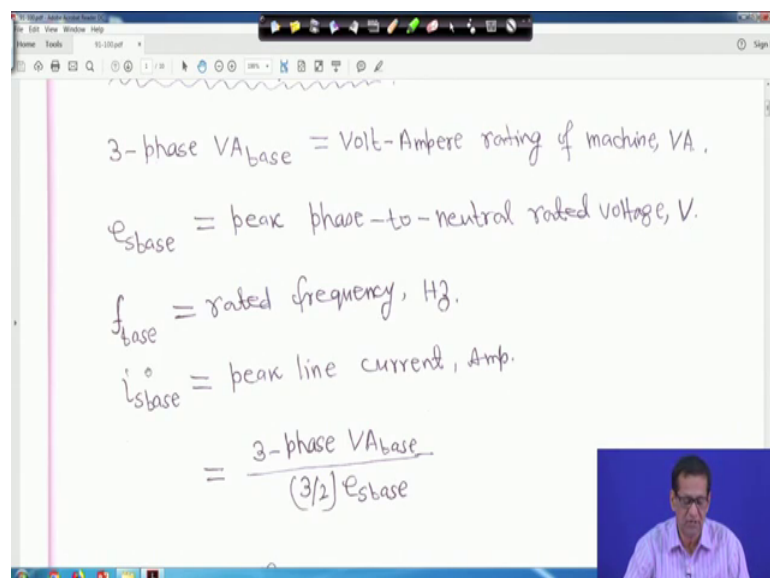 91-100.pdf - Adobe Acrobat Reader DC
File Edit View Window Help
Home Tools 91-100.pdf × Sign
1 / 10
3-phase VAbase = Volt-Ampere rating of machine, VA.
esbase = peak phase-to-neutral rated voltage, V.
fbase = rated frequency, Hz.
isbase = peak line current, Amp.
= 3-phase VAbase
(3/2) esbase